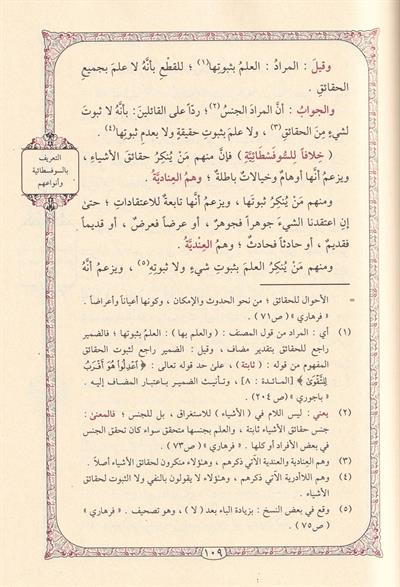 وقيلَ : المرادُ : العلمُ بثبوتِها(١) ؛ للقطْعِ بأنَّهُ لا علمَ بجميعِ
الحقائقِ .
والجوابُ : أنَّ المرادَ الجنسُ(٢)؛ ردّاً على القائلينَ : بأنَّهُ لا ثبوتَ
لشيءٍ مِنَ الحقائقِ(٣) ، ولا علمَ بثبوتِ حقيقةٍ ولا بعدمِ ثبوتِها(٤) .
( خلافاً لِلسُّوفَسْطائِيَّةِ ) فإنَّ منهم مَنْ يُنكِرُ حقائقَ الأشياءِ ،
ويزعمُ أنَّها أوهامٌ وخيالاتٌ باطلةٌ ؛ وهمُ العِناديَّةُ .
ومنهم مَنْ يُنكِرُ ثبوتَها ، ويزعمُ أنَّها تابعةٌ للاعتقاداتِ ؛ حتىٰ
إنِ اعتقدنا الشيءَ جوهراً فجوهرٌ ، أو عرضاً فعرضٌ ، أو قديماً
فقديمٌ ، أو حادثاً فحادثٌ ؛ وهمُ العِنْديَّةُ .
ومنهم مَنْ يُنكِرُ العلمَ بثبوتِ شيءٍ ولا ثبوتِهِ(٥) ، ويزعمُ أنَّهُ
التعريف
بالسوفسطائية
وأنواعهم
= الأحوال للحقائق ؛ من نحو الحدوث والإمكان ، وكونها أعياناً وأعراضاً .
« فرهاري » ( ص٧١ ) .
(١) أي : المراد من قول المصنف : ( والعلم بها ) : العلمُ بثبوتها ؛ فالضمير
راجع للحقائق بتقدير مضاف ، وقيل : الضمير راجع لثبوت الحقائق
المفهوم من قوله : ( ثابتة ) ، علىٰ حد قوله تعالىٰ : ﴿ اعْدِلُوا هُوَ أَقْرَبُ
لِلتَّقْوَىٰ ﴾ [المائدة : ٨] ، وتأنيث الضمير باعتبار المضاف إليه .
« باجوري » ( ص٢٠٤ ) .
(٢) يعني : ليس اللام في ( الأشياء ) للاستغراق ، بل للجنس ؛ فالمعنىٰ :
جنس حقائق الأشياء ثابتة ، والعلم بجنسها متحقق سواء كان تحقق الجنس
في بعض الأفراد أو كلها . « فرهاري » ( ص٧٣ ) .
(٣) وهم العِنادية والعندية الآتي ذكرهم ، وهؤلاء منكرون لحقائق الأشياء أصلاً .
(٤) وهم اللاأدرية الآتي ذكرهم ، وهؤلاء لا يقولون بالنفي ولا الثبوت لحقائق
الأشياء .
(٥) وقع في بعض النسخ : بزيادة الباء بعد ( لا ) ، وهو تصحيف . « فرهاري »
( ص٧٥ ) .
١٠٩